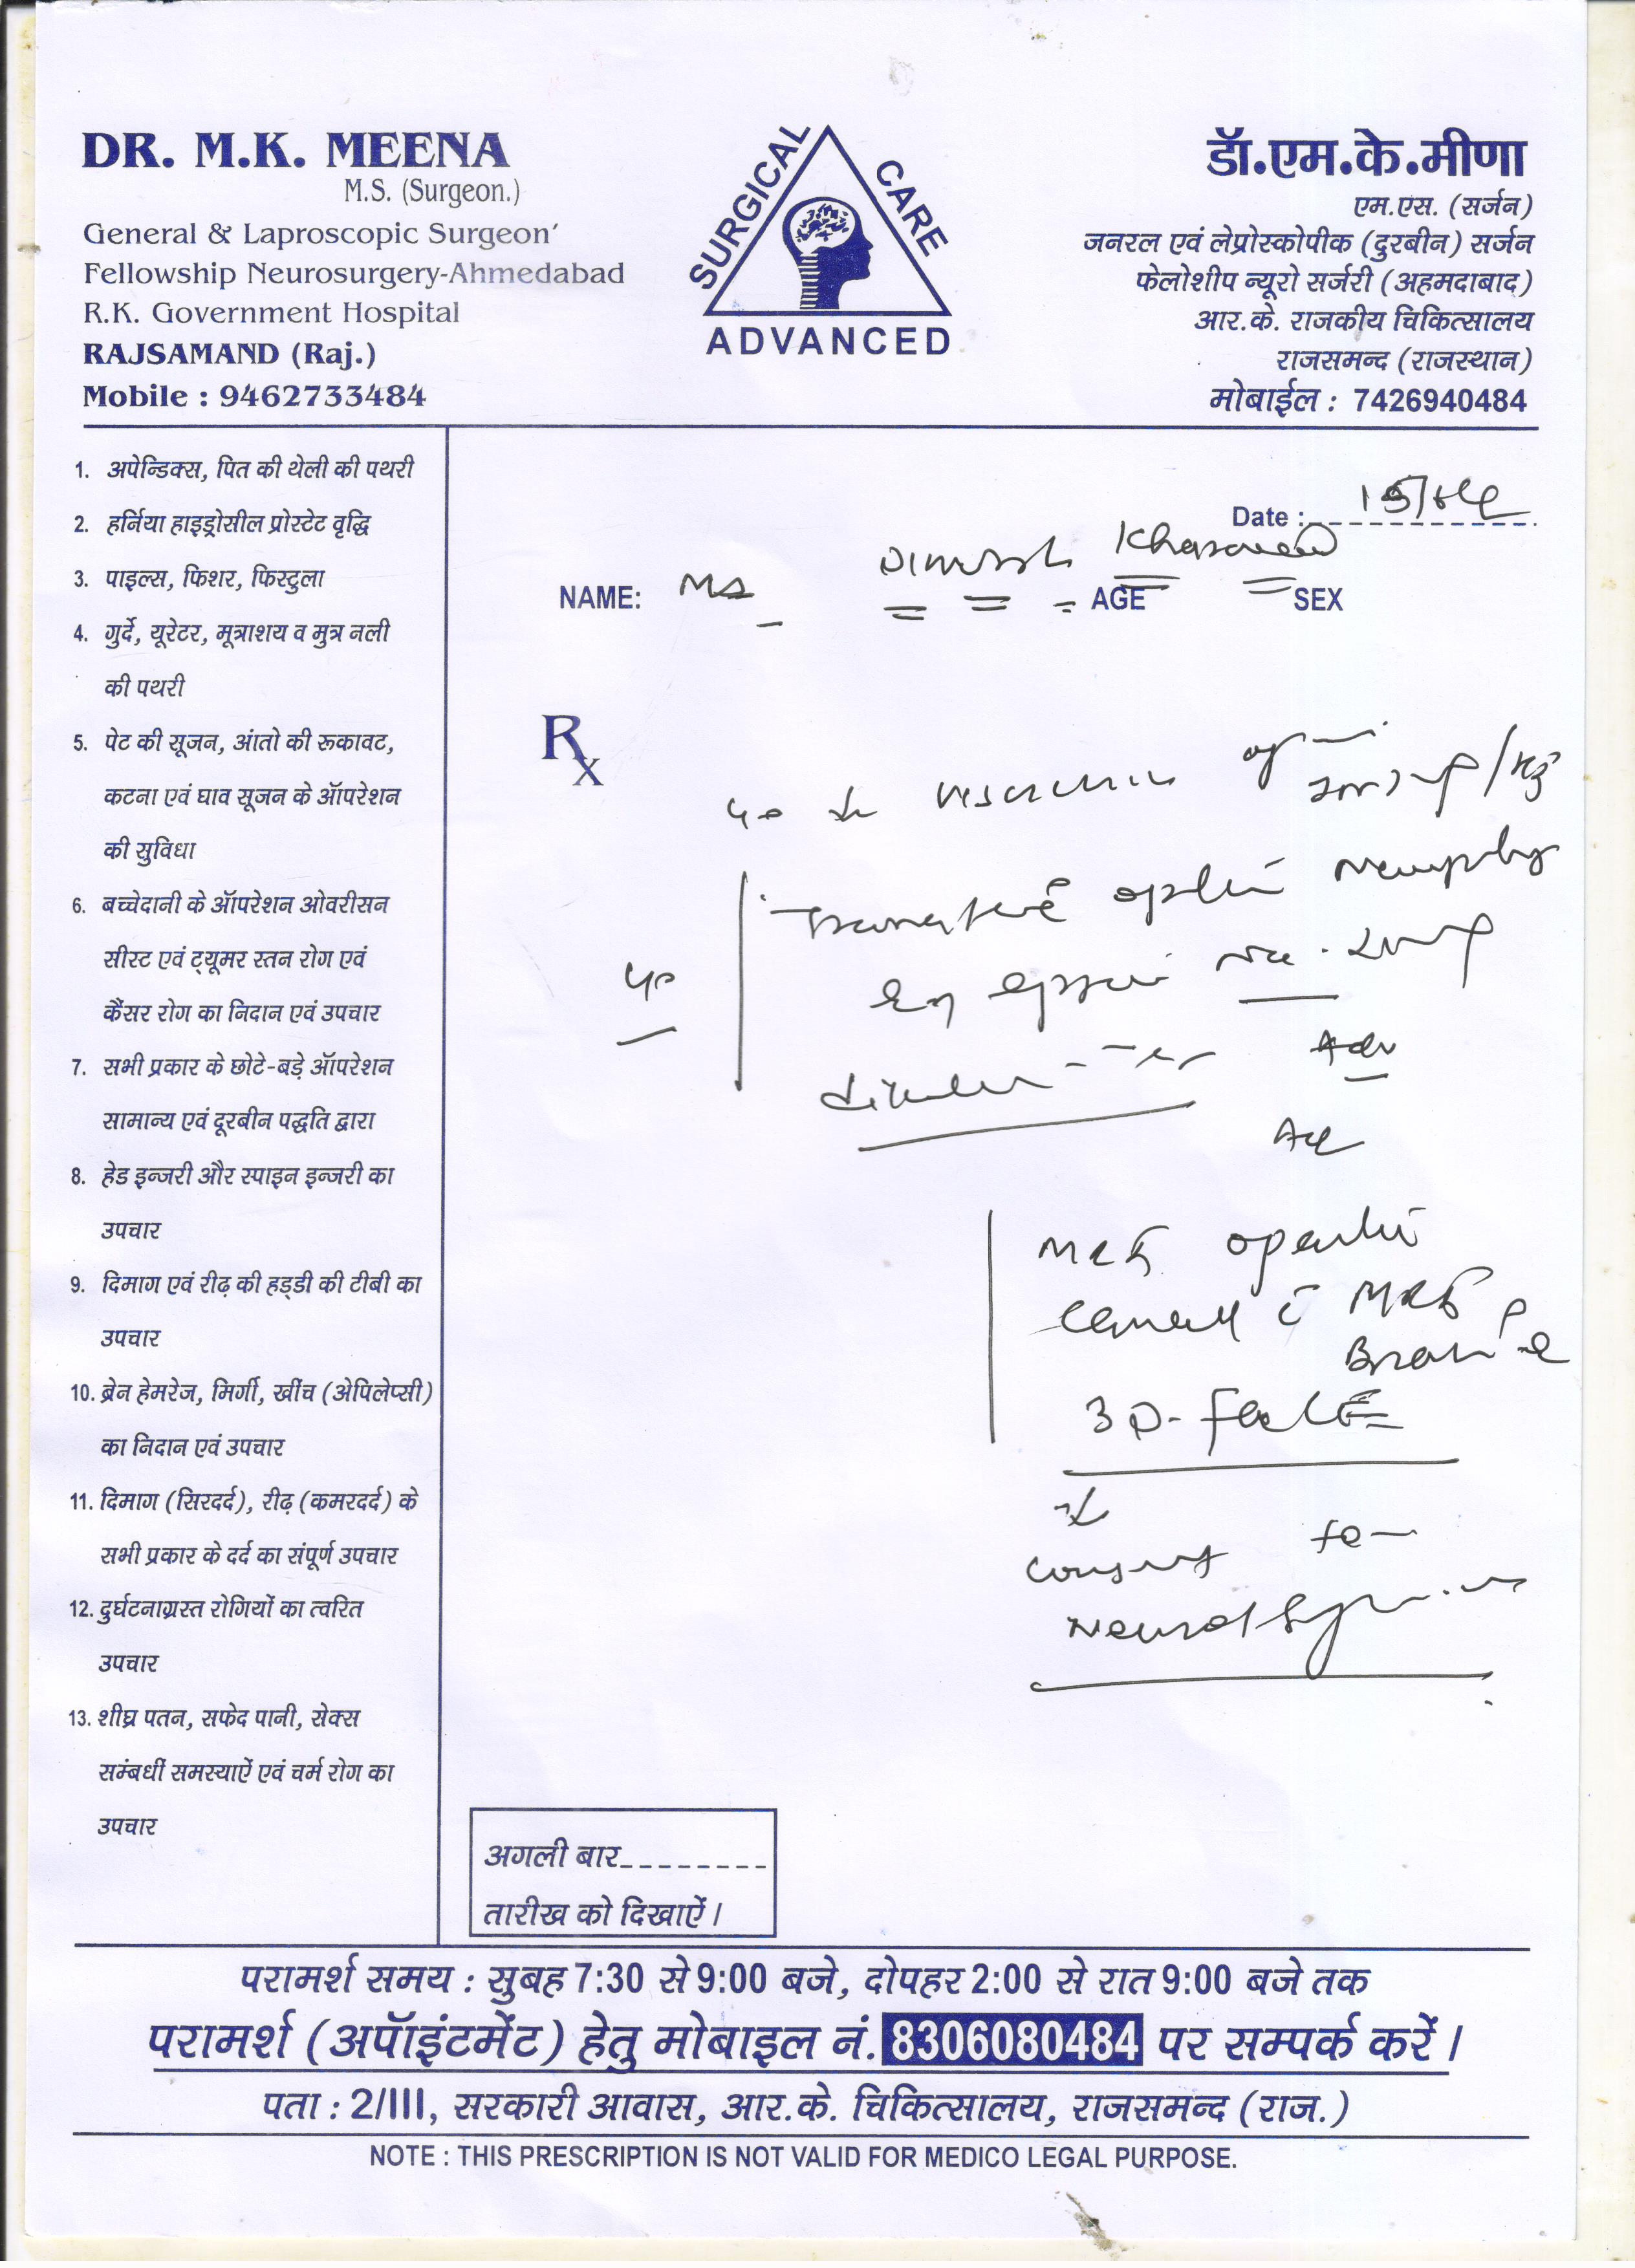 DR. M.K. MEENA
M.S. (Surgeon.)
General & Laproscopic Surgeon'
Fellowship Neurosurgery-Ahmedabad
R.K. Government Hospital
RAJSAMAND (Raj.)
Mobile : 9462733484
SURGICAL CARE
ADVANCED
डॉ.एम.के.मीणा
एम.एस. (सर्जन)
जनरल एवं लेप्रोस्कोपीक (दुरबीन) सर्जन
फेलोशीप न्यूरो सर्जरी (अहमदाबाद)
आर.के. राजकीय चिकित्सालय
राजसमन्द (राजस्थान)
मोबाईल : 7426940484
1. अपेन्डिक्स, पित की थेली की पथरी
2. हर्निया हाइड्रोसील प्रोस्टेट वृद्धि
3. पाइल्स, फिशर, फिस्टुला
4. गुर्दे, यूरेटर, मूत्राशय व मुत्र नली
की पथरी
5. पेट की सूजन, आंतो की रूकावट,
कटना एवं घाव सूजन के ऑपरेशन
की सुविधा
6. बच्चेदानी के ऑपरेशन ओवरीसन
सीस्ट एवं ट्यूमर स्तन रोग एवं
कैंसर रोग का निदान एवं उपचार
7. सभी प्रकार के छोटे-बड़े ऑपरेशन
सामान्य एवं दूरबीन पद्धति द्वारा
8. हेड इन्जरी और स्पाइन इन्जरी का
उपचार
9. दिमाग एवं रीढ़ की हड्डी की टीबी का
उपचार
10. ब्रेन हेमरेज, मिर्गी, खींच (ऐपिलेप्सी)
का निदान एवं उपचार
11. दिमाग (सिरदर्द), रीढ़ (कमरदर्द) के
सभी प्रकार के दर्द का संपूर्ण उपचार
12. दुर्घटनाग्रस्त रोगियों का त्वरित
उपचार
13. शीघ्र पतन, सफेद पानी, सेक्स
सम्बधीं समस्याऐं एवं चर्म रोग का
उपचार
Date :
NAME: Dinesh AGE SEX
Rx
of
optic
Adv
MRI
c MRI
Brain
3D-
Consult
अगली बार
तारीख को दिखाऐं।
परामर्श समय : सुबह 7:30 से 9:00 बजे, दोपहर 2:00 से रात 9:00 बजे तक
परामर्श (अपॉइंटमेंट) हेतु मोबाइल नं. 8306080484 पर सम्पर्क करें।
पता : 2/III, सरकारी आवास, आर.के. चिकित्सालय, राजसमन्द (राज.)
NOTE : THIS PRESCRIPTION IS NOT VALID FOR MEDICO LEGAL PURPOSE.